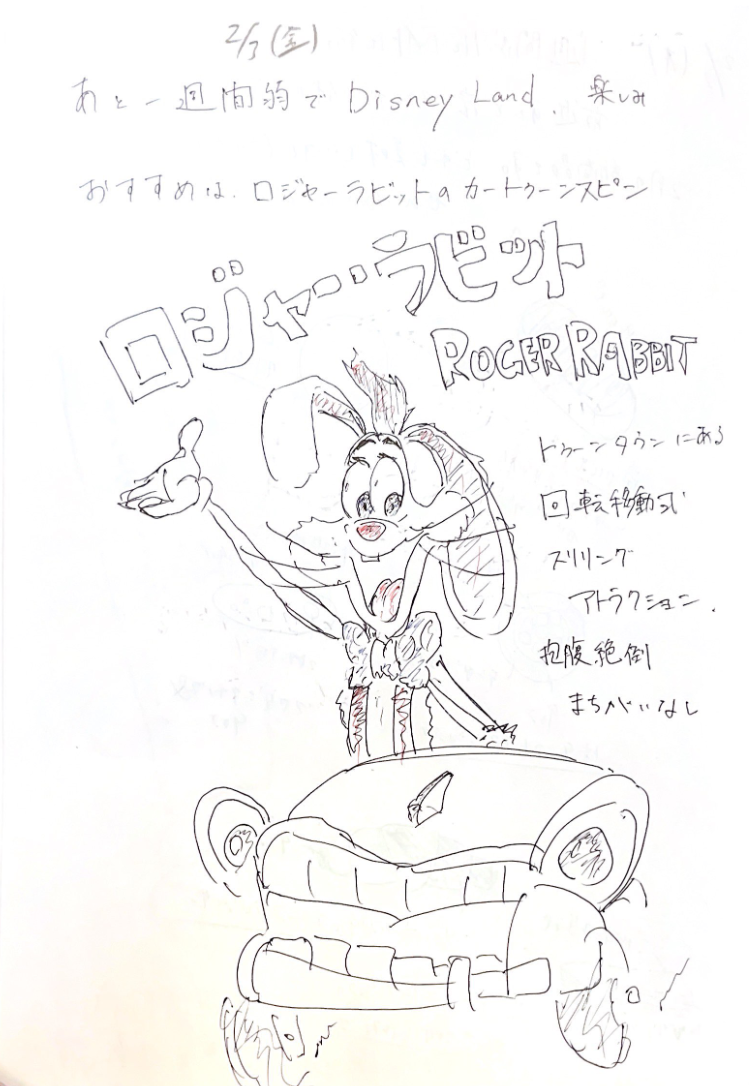 2/3(金)
あと一週間弱でDisney Land、楽しみ
おすすめは、ロジャーラビットのカートゥーンスピン
ロジャー・ラビット
ROGER RABBIT
トゥーンタウンにある
回転移動式
スリリング
アトラクション、
抱腹絶倒
まちがいなし